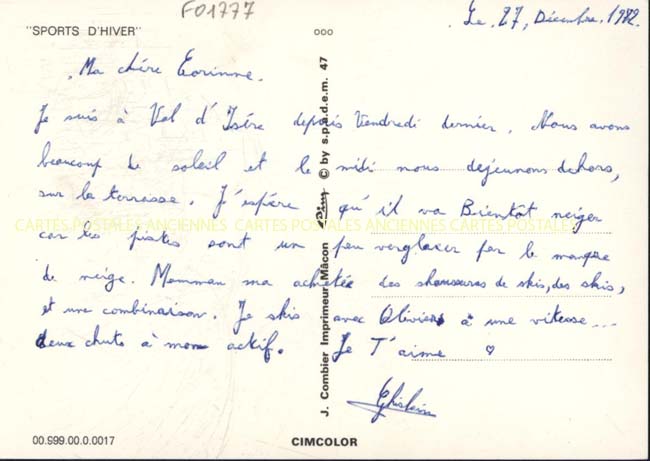 F01777
"SPORTS D'HIVER"
ooo
Le 27, Décembre, 1982.
Ma chére Corinne.
Je suis à Val d'Isére depuis Vendredi dernier. Nous avons
beaucoup de soleil et le midi nous dejeunons dehors,
sur la terrasse. J'espére qu'il va Bientôt neiger
CARTES POSTALES ANCIENNES CARTES POSTALES ANCIENNES CARTES POSTALES
car les pistes sont un peu verglacer par le manque
de neige. Memman ma achetée des shaussures de skis, des skis,
et une combinaison. Je skis avec Olivier à une vitesse...
deux chute à mon actif. Je T'aime ♡
Ghislain
J. Combier Imprimeur Mâcon © by s.p.a.d.e.m. 47
00.599.00.0.0017
CIMCOLOR